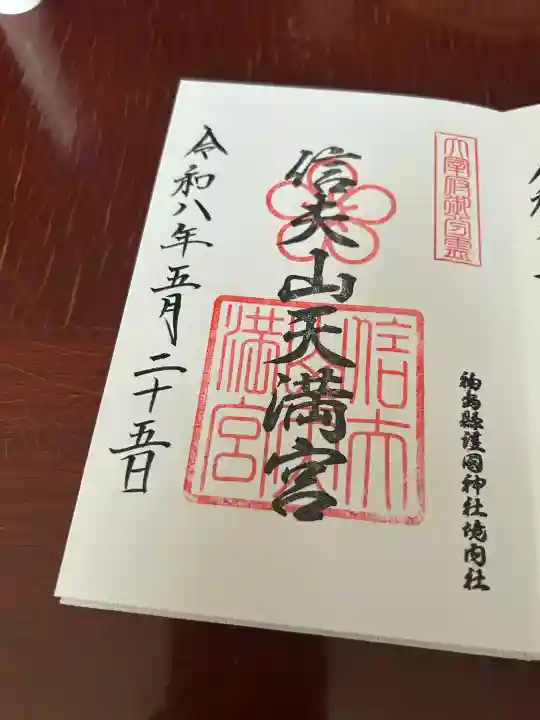 太宰府御分霊
福島縣護國神社境内社
信夫山天満宮
信夫
満宮
令和八年五月二十五日